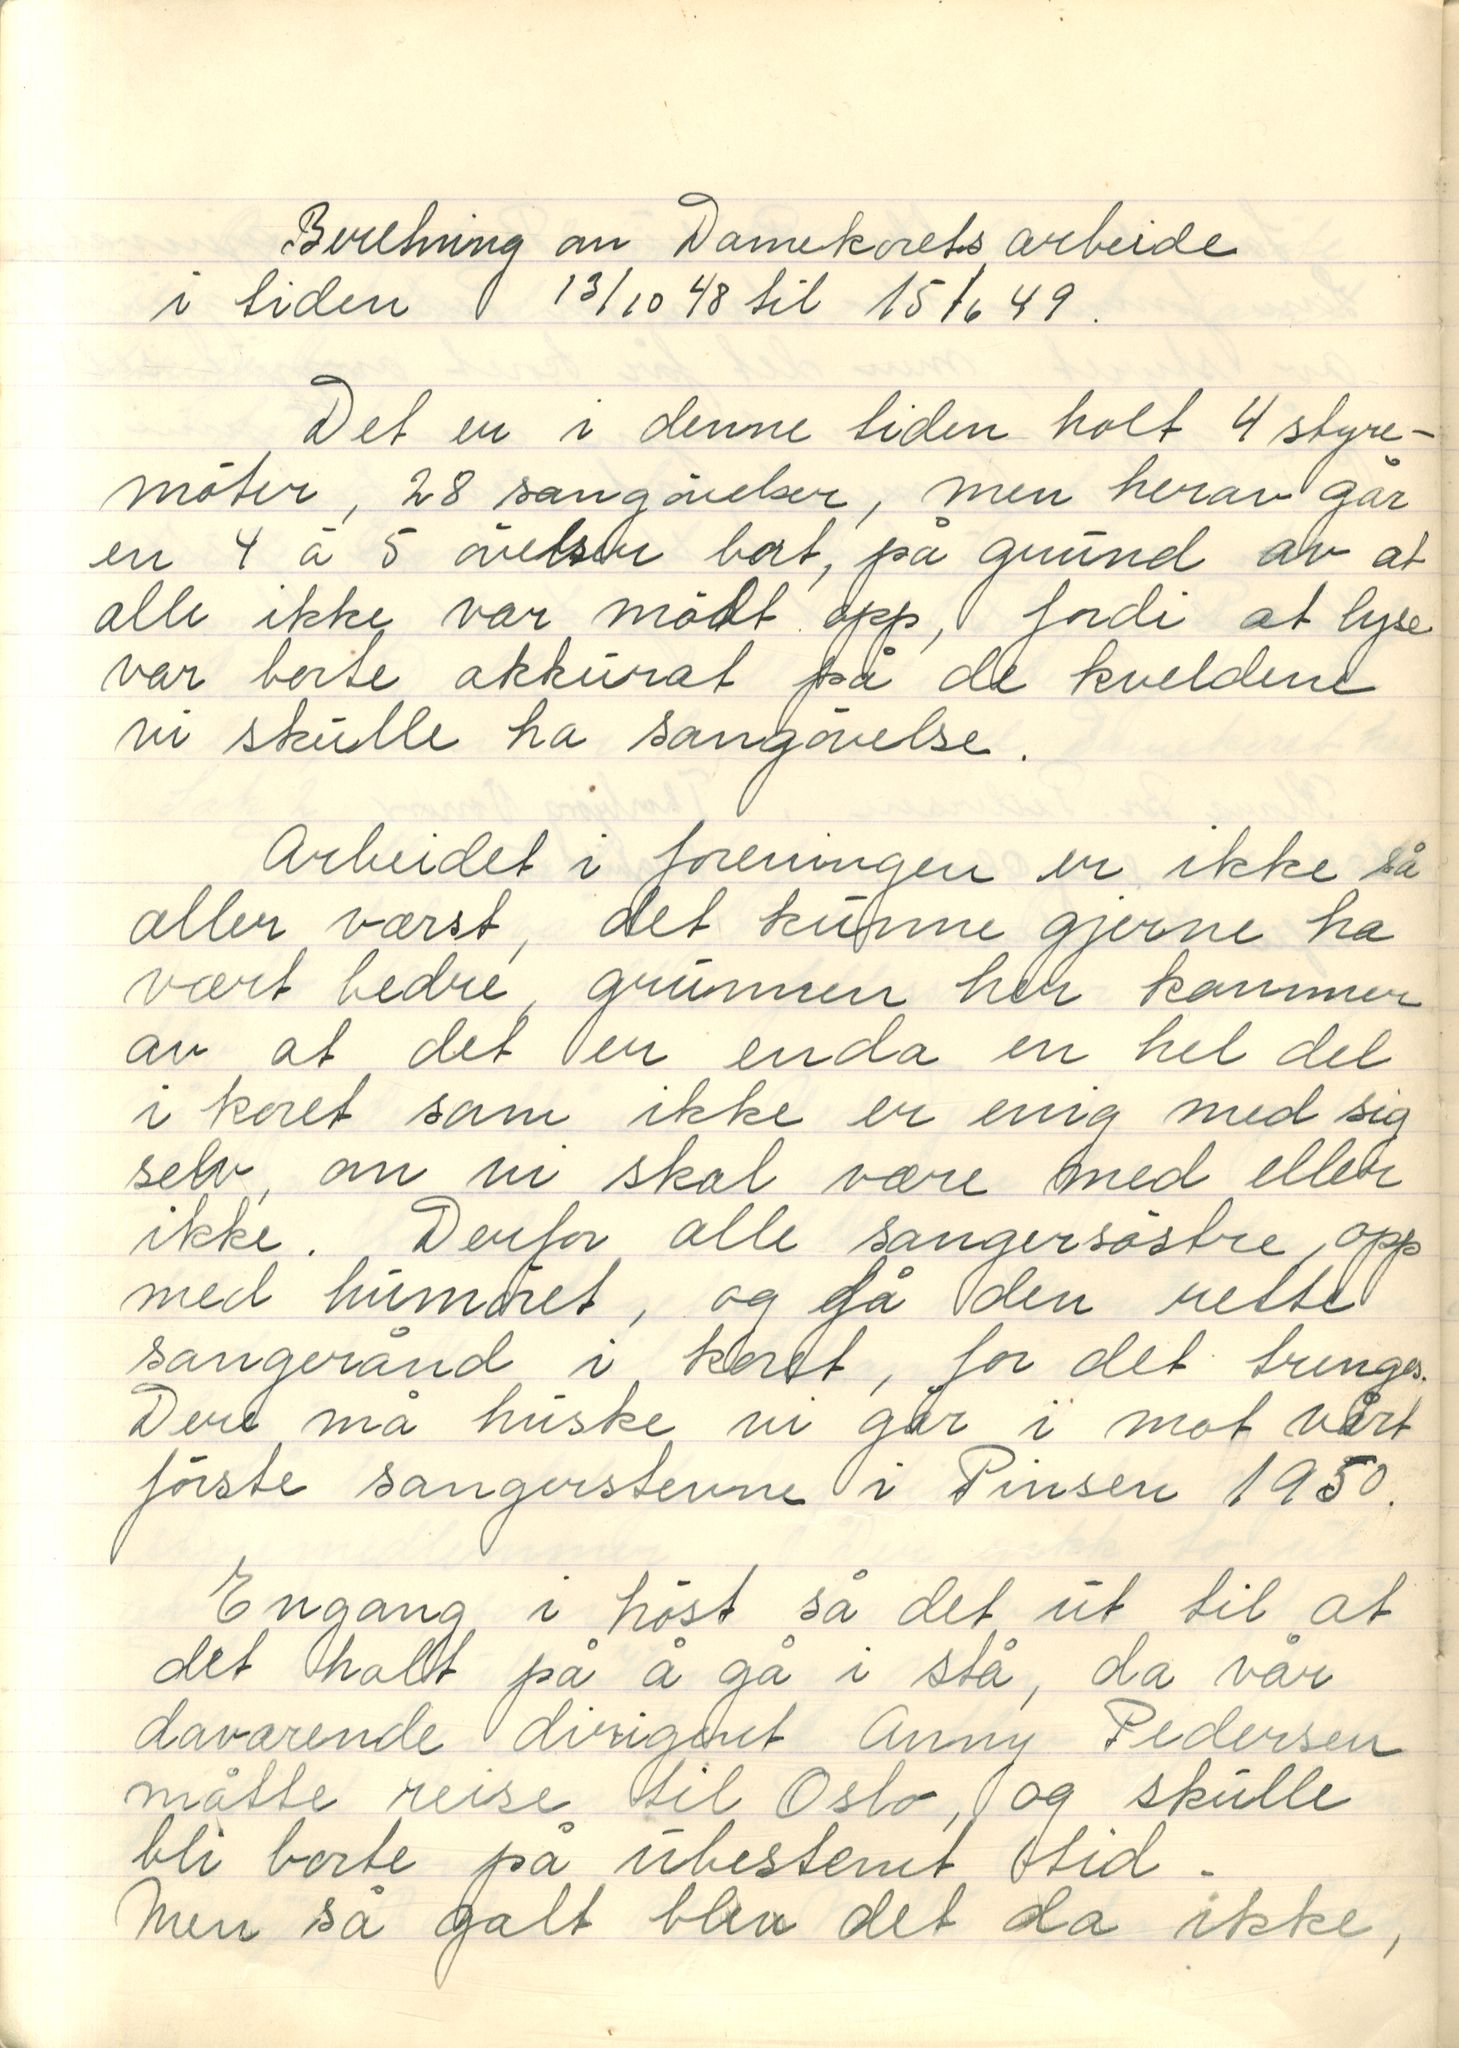 Beretning om Damekorets arbeide
i tiden 13/10 48 til 15/6 49.
Det er i denne tiden holt 4 styre-
möter, 28 sangövelser, men herav går
en 4 à 5 övelser bort, på grund av at
alle ikke var mödt opp, fordi at lyse
var borte akkurat på de kveldene
vi skulle ha sangövelse.
Arbeidet i foreningen er ikke så
aller værst, det kunne gjerne ha
vært bedre, grunnen her kommer
av at det er enda en hel del
i koret som ikke er enig med sig
selv, om vi skal være med eller
ikke. Derfor alle sangersöstre, opp
med humöret, og få den rette
sangerånd i koret, for det trenges.
Dere må huske vi går i mot vårt
förste sangerstevne i Pinsen 1950.
Engang i höst så det ut til at
det holt på å gå i stå, da vår
davarende dirigent Anny Pedersen
måtte reise til Oslo, og skulle
bli borte på ubestemt tid.
Men så galt blev det da ikke,